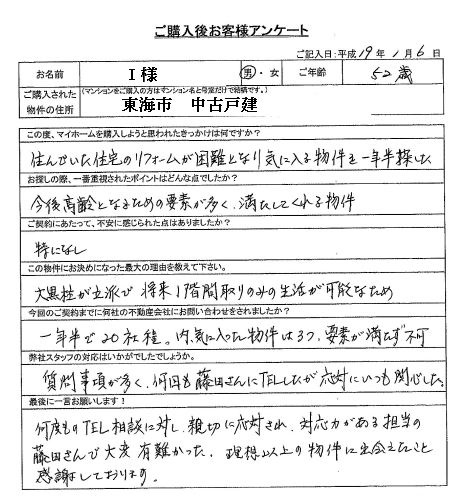 ご購入後お客様アンケート
ご記入日:平成 19年 1月 6日
お名前 I様 男・女 ご年齢 52歳
ご購入された物件の住所 (マンションをご購入の方はマンション名と号室だけで結構です。)
東海市 中古戸建
この度、マイホームを購入しようと思われたきっかけは何ですか?
住んでいた住宅のリフォームが困難となり気に入る物件を一年半探した
お探しの際、一番重視されたポイントはどんな点でしたか?
今後高齢となるための要素が多く、満たしてくれる物件
ご契約にあたって、不安に感じられた点はありましたか?
特になし
この物件にお決めになった最大の理由を教えて下さい。
大黒柱が立派で 将来1階間取りのみの生活が可能なため
今回のご契約までに何社の不動産会社にお問い合わせをされましたか?
一年半で20社程。内、気に入った物件は3つ、要素が満たず不可
弊社スタッフの対応はいかがでしたでしょうか。
質問事項が多く、何回も藤田さんにTELしたが応対にいつも関心した。
最後に一言お願いします!
何度ものTEL相談に対し、親切に応対され、対応力がある担当の
藤田さんで大変有難かった。理想以上の物件に出会えたこと
感謝しております。